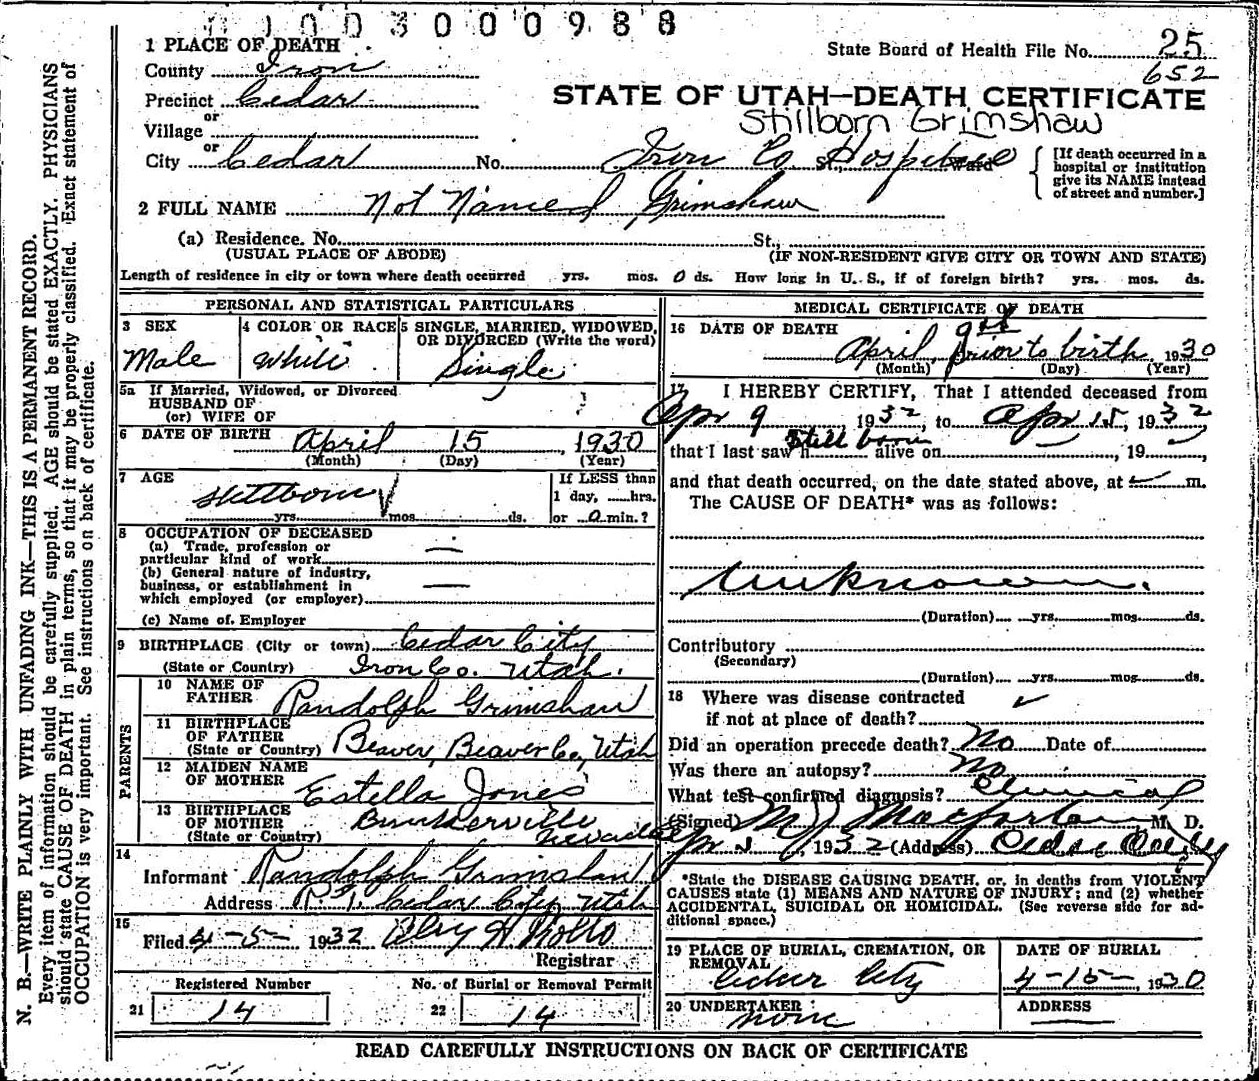 3000988
1 PLACE OF DEATH
State Board of Health File No. 25
652
County Iron
Precinct Cedar
or
Village
or
City Cedar No. Iron Co St., Hospital Ward
STATE OF UTAH—DEATH CERTIFICATE
Stillborn Grimshaw
[If death occurred in a
hospital or institution
give its NAME instead
of street and number.]
2 FULL NAME Not Named Grimshaw
(a) Residence. No. St.,
(USUAL PLACE OF ABODE) (IF NON-RESIDENT GIVE CITY OR TOWN AND STATE)
Length of residence in city or town where death occurred yrs. mos. 0 ds. How long in U. S., if of foreign birth? yrs. mos. ds.
PERSONAL AND STATISTICAL PARTICULARS
3 SEX
Male
4 COLOR OR RACE
White
5 SINGLE, MARRIED, WIDOWED,
OR DIVORCED (Write the word)
Single
5a If Married, Widowed, or Divorced
HUSBAND OF
(or) WIFE OF
6 DATE OF BIRTH April 15, 1930
(Month) (Day) (Year)
7 AGE
Stillborn
yrs. mos. ds.
If LESS than
1 day, hrs.
or 0 min.?
8 OCCUPATION OF DECEASED
(a) Trade, profession or
particular kind of work —
(b) General nature of industry,
business, or establishment in
which employed (or employer) —
(c) Name of Employer
9 BIRTHPLACE (City or town) Cedar City
(State or Country) Iron Co. Utah.
PARENTS
10 NAME OF
FATHER Randolph Grimshaw
11 BIRTHPLACE
OF FATHER
(State or Country) Beaver, Beaver Co, Utah
12 MAIDEN NAME
OF MOTHER Estella Jones
13 BIRTHPLACE
OF MOTHER
(State or Country) Bunkerville
Nevada
14
Informant Randolph Grimshaw
Address Cedar City Utah
15
Filed 4-5- 1932
Registrar
Registered Number
21 14
No. of Burial or Removal Permit
22 14
MEDICAL CERTIFICATE OF DEATH
16 DATE OF DEATH
April, 9th prior to birth, 1930
(Month) (Day) (Year)
17 I HEREBY CERTIFY, That I attended deceased from
Apr 9 1932, to Apr 15, 1932
that I last saw h Still born alive on , 19 ,
and that death occurred, on the date stated above, at m.
The CAUSE OF DEATH* was as follows:
Unknown.
(Duration) yrs. mos. ds.
Contributory
(Secondary)
(Duration) yrs. mos. ds.
18 Where was disease contracted
if not at place of death?
Did an operation precede death? No Date of
Was there an autopsy? No
What test confirmed diagnosis? Clinical
(Signed) M J Macfarlane M. D.
Apr 1932 (Address) Cedar City
*State the DISEASE CAUSING DEATH, or, in deaths from VIOLENT
CAUSES state (1) MEANS AND NATURE OF INJURY; and (2) whether
ACCIDENTAL, SUICIDAL OR HOMICIDAL. (See reverse side for ad-
ditional space.)
19 PLACE OF BURIAL, CREMATION, OR
REMOVAL
Cedar City
DATE OF BURIAL
4-15-, 1930
20 UNDERTAKER
none
ADDRESS
—
READ CAREFULLY INSTRUCTIONS ON BACK OF CERTIFICATE
N. B.—WRITE PLAINLY WITH UNFADING INK—THIS IS A PERMANENT RECORD.
Every item of information should be carefully supplied. AGE should be stated EXACTLY. PHYSICIANS
should state CAUSE OF DEATH in plain terms, so that it may be properly classified. Exact statement of
OCCUPATION is very important. See instructions on back of certificate.